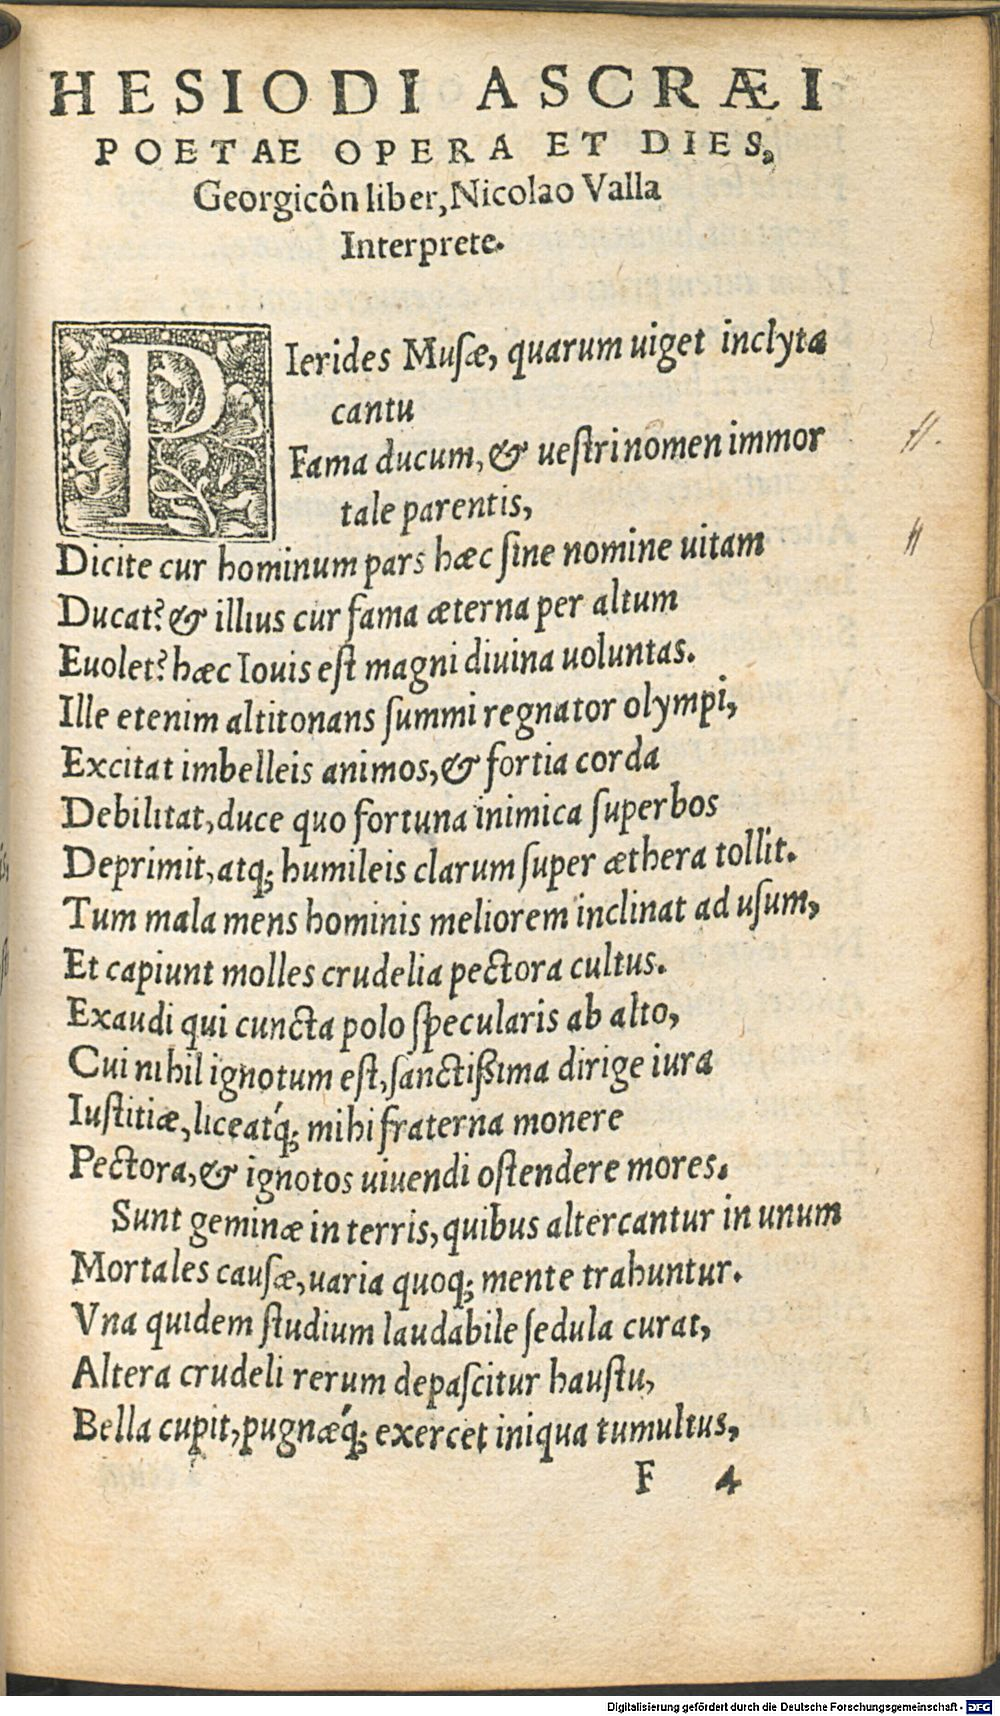 HESIODI ASCRÆI
POETAE OPERA ET DIES,
Georgicôn liber, Nicolao Valla
Interprete.
PIerides Muſæ, quarum uiget inclyta
cantu
Fama ducum, & ueſtri nomen immor
tale parentis,
Dicite cur hominum pars hæc ſine nomine uitam
Ducat? & illius cur fama æterna per altum
Euolet? hæc Iouis eſt magni diuina uoluntas.
Ille etenim altitonans ſummi regnator olympi,
Excitat imbelleis animos, & fortia corda
Debilitat, duce quo fortuna inimica ſuperbos
Deprimit, atq; humileis clarum ſuper æthera tollit.
Tum mala mens hominis meliorem inclinat ad uſum,
Et capiunt molles crudelia pectora cultus.
Exaudi qui cuncta polo ſpecularis ab alto,
Cui nihil ignotum eſt, ſanctißima dirige iura
Iuſtitiæ, liceat'q; mihi fraterna monere
Pectora, & ignotos uiuendi oſtendere mores.
Sunt geminæ in terris, quibus altercantur in unum
Mortales cauſæ, uaria quoq; mente trahuntur.
Vna quidem ſtudium laudabile ſedula curat,
Altera crudeli rerum depaſcitur hauſtu,
Bella cupit, pugnæ'q; exercet iniqua tumultus,
F 4
Digitalisierung gefördert durch die Deutsche Forschungsgemeinschaft - DFG